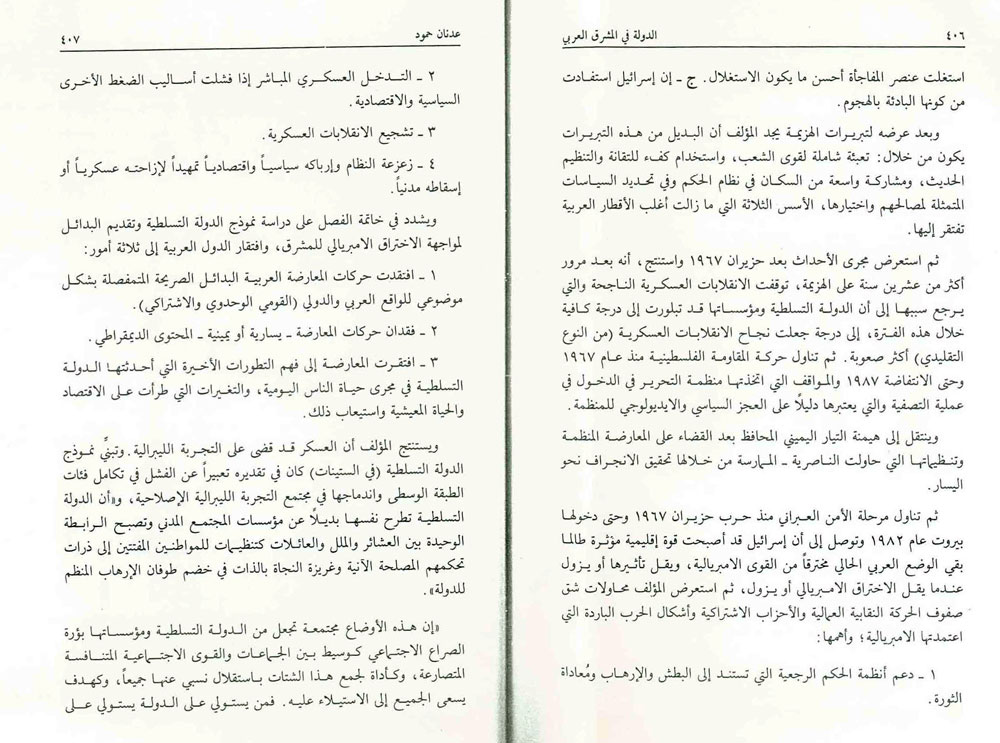 ٤٠٦
الدولة في المشرق العربي
استغلت عنصر المفاجأة أحسن ما يكون الاستغلال. ج ـ إن إسرائيل استفادت
من كونها البادئة بالهجوم.
وبعد عرضه لتبريرات الهزيمة يجد المؤلف أن البديل من هذه التبريرات
يكون من خلال: تعبئة شاملة لقوى الشعب، واستخدام كفء للتقانة والتنظيم
الحديث، ومشاركة واسعة من السكان في نظام الحكم وفي تحديد السياسات
المتمثلة لمصالحهم واختيارها، الأسس الثلاثة التي ما زالت أغلب الأقطار العربية
تفتقر إليها.
ثم استعرض مجرى الأحداث بعد حزيران ١٩٦٧ واستنتج، أنه بعد مرور
أكثر من عشرين سنة على الهزيمة، توقفت الانقلابات العسكرية الناجحة والتي
يرجع سببها إلى أن الدولة التسلطية ومؤسساتها قد تبلورت إلى درجة كافية
خلال هذه الفترة، إلى درجة جعلت نجاح الانقلابات العسكرية (من النوع
التقليدي) أكثر صعوبة. ثم تناول حركة المقاومة الفلسطينية منذ عام ١٩٦٧
وحتى الانتفاضة ١٩٨٧ والمواقف التي اتخذتها منظمة التحرير في الدخول في
عملية التصفية والتي يعتبرها دليلاً على العجز السياسي والايديولوجي للمنظمة.
وينتقل إلى هيمنة التيار اليميني المحافظ بعد القضاء على المعارضة المنظمة
وتنظيماتها التي حاولت الناصرية ـ الممارسة من خلالها تحقيق الانجراف نحو
اليسار.
ثم تناول مرحلة الأمن العبراني منذ حرب حزيران ١٩٦٧ وحتى دخولها
بيروت عام ١٩٨٢ وتوصل إلى أن إسرائيل قد أصبحت قوة إقليمية مؤثرة طالما
بقي الوضع العربي الحالي مخترقاً من القوى الامبريالية، ويقل تأثيرها أو يزول
عندما يقل الاختراق الامبريالي أو يزول، ثم استعرض المؤلف محاولات شق
صفوف الحركة النقابية العمالية والأحزاب الاشتراكية وأشكال الحرب الباردة التي
اعتمدتها الامبريالية؛ وأهمها:
١ ـ دعم أنظمة الحكم الرجعية التي تستند إلى البطش والإرهاب ومُعاداة
الثورة.
عدنان حمود
٤٠٧
٢ ـ التدخل العسكري المباشر إذا فشلت أساليب الضغط الأخرى
السياسية والاقتصادية.
٣ ـ تشجيع الانقلابات العسكرية.
٤ ـ زعزعة النظام وإرباكه سياسياً واقتصادياً تمهيداً لإزاحته عسكرياً أو
إسقاطه مدنياً.
ويشدد في خاتمة الفصل على دراسة نموذج الدولة التسلطية وتقديم البدائل
لمواجهة الاختراق الامبريالي للمشرق، وافتقار الدول العربية إلى ثلاثة أمور:
١ ـ افتقدت حركات المعارضة العربية البدائل الصريحة المتمفصلة بشكل
موضوعي للواقع العربي والدولي (القومي الوحدوي والاشتراكي).
٢ ـ فقدان حركات المعارضة ـ يسارية أو يمينية ـ المحتوى الديمقراطي.
٣ ـ افتقرت المعارضة إلى فهم التطورات الأخيرة التي أحدثتها الدولة
التسلطية في مجرى حياة الناس اليومية، والتغيرات التي طرأت على الاقتصاد
والحياة المعيشية واستيعاب ذلك.
ويستنتج المؤلف أن العسكر قد قضى على التجربة الليبرالية. وتبنِّي نموذج
الدولة التسلطية (في الستينات) كان في تقديره تعبيراً عن الفشل في تكامل فئات
الطبقة الوسطى واندماجها في مجتمع التجربة الليبرالية الإصلاحية، و«أن الدولة
التسلطية تطرح نفسها بديلاً عن مؤسسات المجتمع المدني وتصبح الرابطة
الوحيدة بين العشائر والملل والعائلات كتنظيمات للمواطنين المفتتين إلى ذرات
تحكمهم المصلحة الآنية وغريزة النجاة بالذات في خضم طوفان الإرهاب المنظم
للدولة».
«إن هذه الأوضاع مجتمعة تجعل من الدولة التسلطية ومؤسساتها بؤرة
الصراع الاجتماعي كوسيط بين الجماعات والقوى الاجتماعية المتنافسة
المتصارعة، وكأداة لجمع هذا الشتات باستقلال نسبي عنها جميعاً، وكهدف
يسعى الجميع إلى الاستيلاء عليه. فمن يستولي على الدولة يستولي على